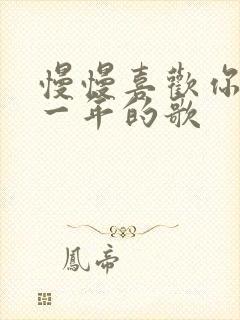 慢慢喜歡你
一年的歌
鳳帝